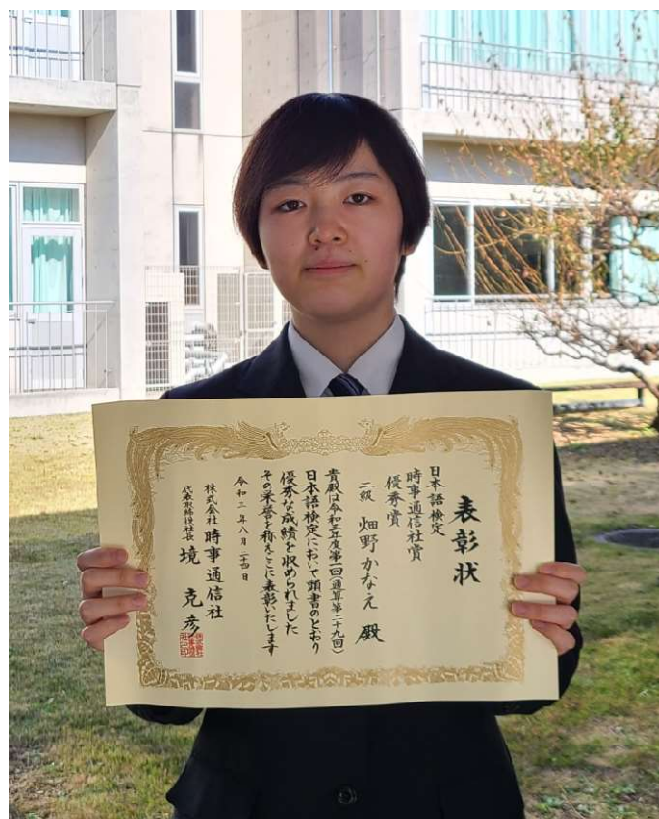 表彰状
日本語検定
時事通信社賞
優秀賞
二級 畑野かなえ 殿
貴殿は令和三年度第一回(通算第二十九回)
日本語検定において頭書のとおり
優秀な成績を収められました
その栄誉を称えここに表彰いたします
令和三年八月二十四日
株式会社 時事通信社
代表取締役社長 境 克彦